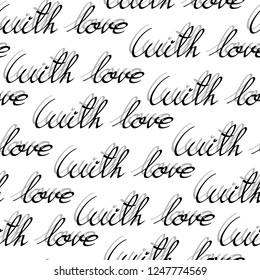 with love
with love
with love
with lo
ve
with love
with
love
with love
with
th love
with love
ith love
with love
shutterstock.com · 1247774569